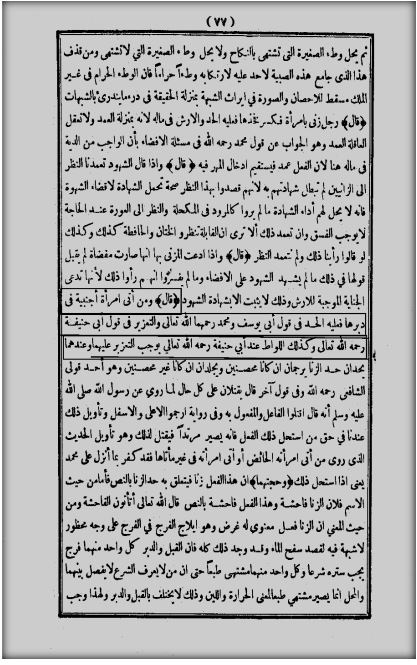 (٧٧)
ثم يحل وطء الصغيرة التى تشتهى بالنكاح ولا يحل وطء الصغيرة التي لا تشتهى ومن قذف
هذا الذى جامع هذه الصبية لاحد عليه لارتكابه وطءا حراما فان الوطء الحرام فى غير
الملك مسقط للاحصان والصورة فى ايراث الشبهة بمنزلة الحقيقة فى درء ما يندرئ بالشبهات
﴿قال﴾ رجل زنى بامرأة فكسر فخذها فعليه الحد والارش فى ماله لانه بمنزلة العمد ولا تعقل
العاقلة العمد وهو الجواب عن قول محمد رحمه الله فى مسئلة الافضاء بأن الواجب من الدية
فى ماله هنا لان الفعل عمد فيستقيم ادخال المهر فيه ﴿قال﴾ واذا قال الشهود تعمدنا النظر
الى الزانيين لم تبطل شهادتهم به لانهم قصدوا بهذا النظر صحة تحمل الشهادة لا قضاء الشهوة
فانه لا يحل لهم أداء الشهادة ما لم يروا كالمرود فى المكحلة والنظر الى العورة عند الحاجة
لا يوجب الفسق وان تعمد ذلك ألا ترى ان القابلة تنظر والختان والحافظة كذلك وكذلك
لو قالوا رأينا ذلك ولم نتعمد النظر ﴿قال﴾ واذا ادعت المزنى بها انها صارت مفضاة لم يقبل
قولها في ذلك ما لم يشهد الشهود على الافضاء وما لم يفسروا انهم رأوا ذلك لأنها تدعى
الجناية الموجبة للارش وذلك لا يثبت الا بشهادة الشهود ﴿قال﴾ ومن أتى امرأة أجنبية فى
دبرها فعليه الحد فى قول أبى يوسف ومحمد رحمهما الله تعالى والتعزير فى قول أبى حنيفة
رحمه الله تعالى وكذلك اللواط عند أبى حنيفة رحمه الله تعالى يوجب التعزير عليهما وعندهما
يحدان حد الزنا يرجمان ان كانا محصنين ويجلدان ان كانا غير محصنين وهو أحد قولى
الشافعى رحمه الله وفى قول آخر قال يقتلان على كل حال لما روي عن رسول الله صلى الله
عليه وسلم أنه قال اقتلوا الفاعل والمفعول به وفى رواية ارجموا الاعلى والاسفل وتأويل ذلك
عندنا فى حق من استحل ذلك الفعل فانه يصير مرتدا فيقتل لذلك وهو تأويل الحديث
الذى روى من أتى امرأته الحائض أو أتى امرأته فى غير مأتاها فقد كفر بما أنزل على محمد
يعنى اذا استحل ذلك ﴿وحجتهما﴾ ان هذا الفعل زنا فيتعلق به حد الزنا بالنص فأما من حيث
الاسم فلان الزنا فاحشة وهذا الفعل فاحشة بالنص قال الله تعالى أتأتون الفاحشة ومن
حيث المعنى ان الزنا فعل معنوي له غرض وهو ايلاج الفرج في الفرج على وجه محظور
لا شبهة فيه لقصد سفح الماء وقد وجد ذلك كله فان القبل والدبر كل واحد منهما فرج
يجب ستره شرعا وكل واحد منهما مشتهى طبعا حتى ان من لا يعرف الشرع لا يفصل بينهما
والمحل انما يصير مشتهي طبعا لمعنى الحرارة واللين وذلك لا يختلف بالقبل والدبر ولهذا وجب